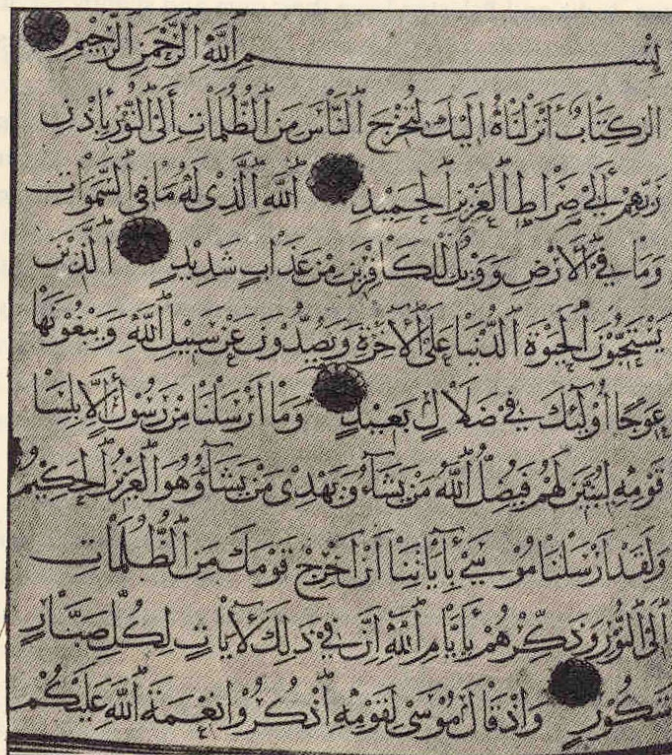 بِسْمِ اللَّهِ الرَّحْمَنِ الرَّحِيمِ
الر كِتَابٌ أَنْزَلْنَاهُ إِلَيْكَ لِتُخْرِجَ النَّاسَ مِنَ الظُّلُمَاتِ إِلَى النُّورِ بِإِذْنِ
رَبِّهِمْ إِلَى صِرَاطِ الْعَزِيزِ الْحَمِيدِ اللَّهِ الَّذِي لَهُ مَا فِي السَّمَوَاتِ
وَمَا فِي الْأَرْضِ وَوَيْلٌ لِلْكَافِرِينَ مِنْ عَذَابٍ شَدِيدٍ الَّذِينَ
يَسْتَحِبُّونَ الْحَيَوةَ الدُّنْيَا عَلَى الْآخِرَةِ وَيَصُدُّونَ عَنْ سَبِيلِ اللَّهِ وَيَبْغُونَهَا
عِوَجًا أُولَئِكَ فِي ضَلَالٍ بَعِيدٍ وَمَا أَرْسَلْنَا مِنْ رَسُولٍ إِلَّا بِلِسَا
قَوْمِهِ لِيُبَيِّنَ لَهُمْ فَيُضِلُّ اللَّهُ مَنْ يَشَاءُ وَيَهْدِي مَنْ يَشَاءُ وَهُوَ الْعَزِيزُ الْحَكِيمُ
وَلَقَدْ أَرْسَلْنَا مُوسَى بِآيَاتِنَا أَنْ أَخْرِجْ قَوْمَكَ مِنَ الظُّلُمَاتِ
إِلَى النُّورِ وَذَكِّرْهُمْ بِأَيَّامِ اللَّهِ إِنَّ فِي ذَلِكَ لَآيَاتٍ لِكُلِّ صَبَّارٍ
شَكُورٍ وَإِذْ قَالَ مُوسَى لِقَوْمِهِ اذْكُرُوا نِعْمَةَ اللَّهِ عَلَيْكُمْ